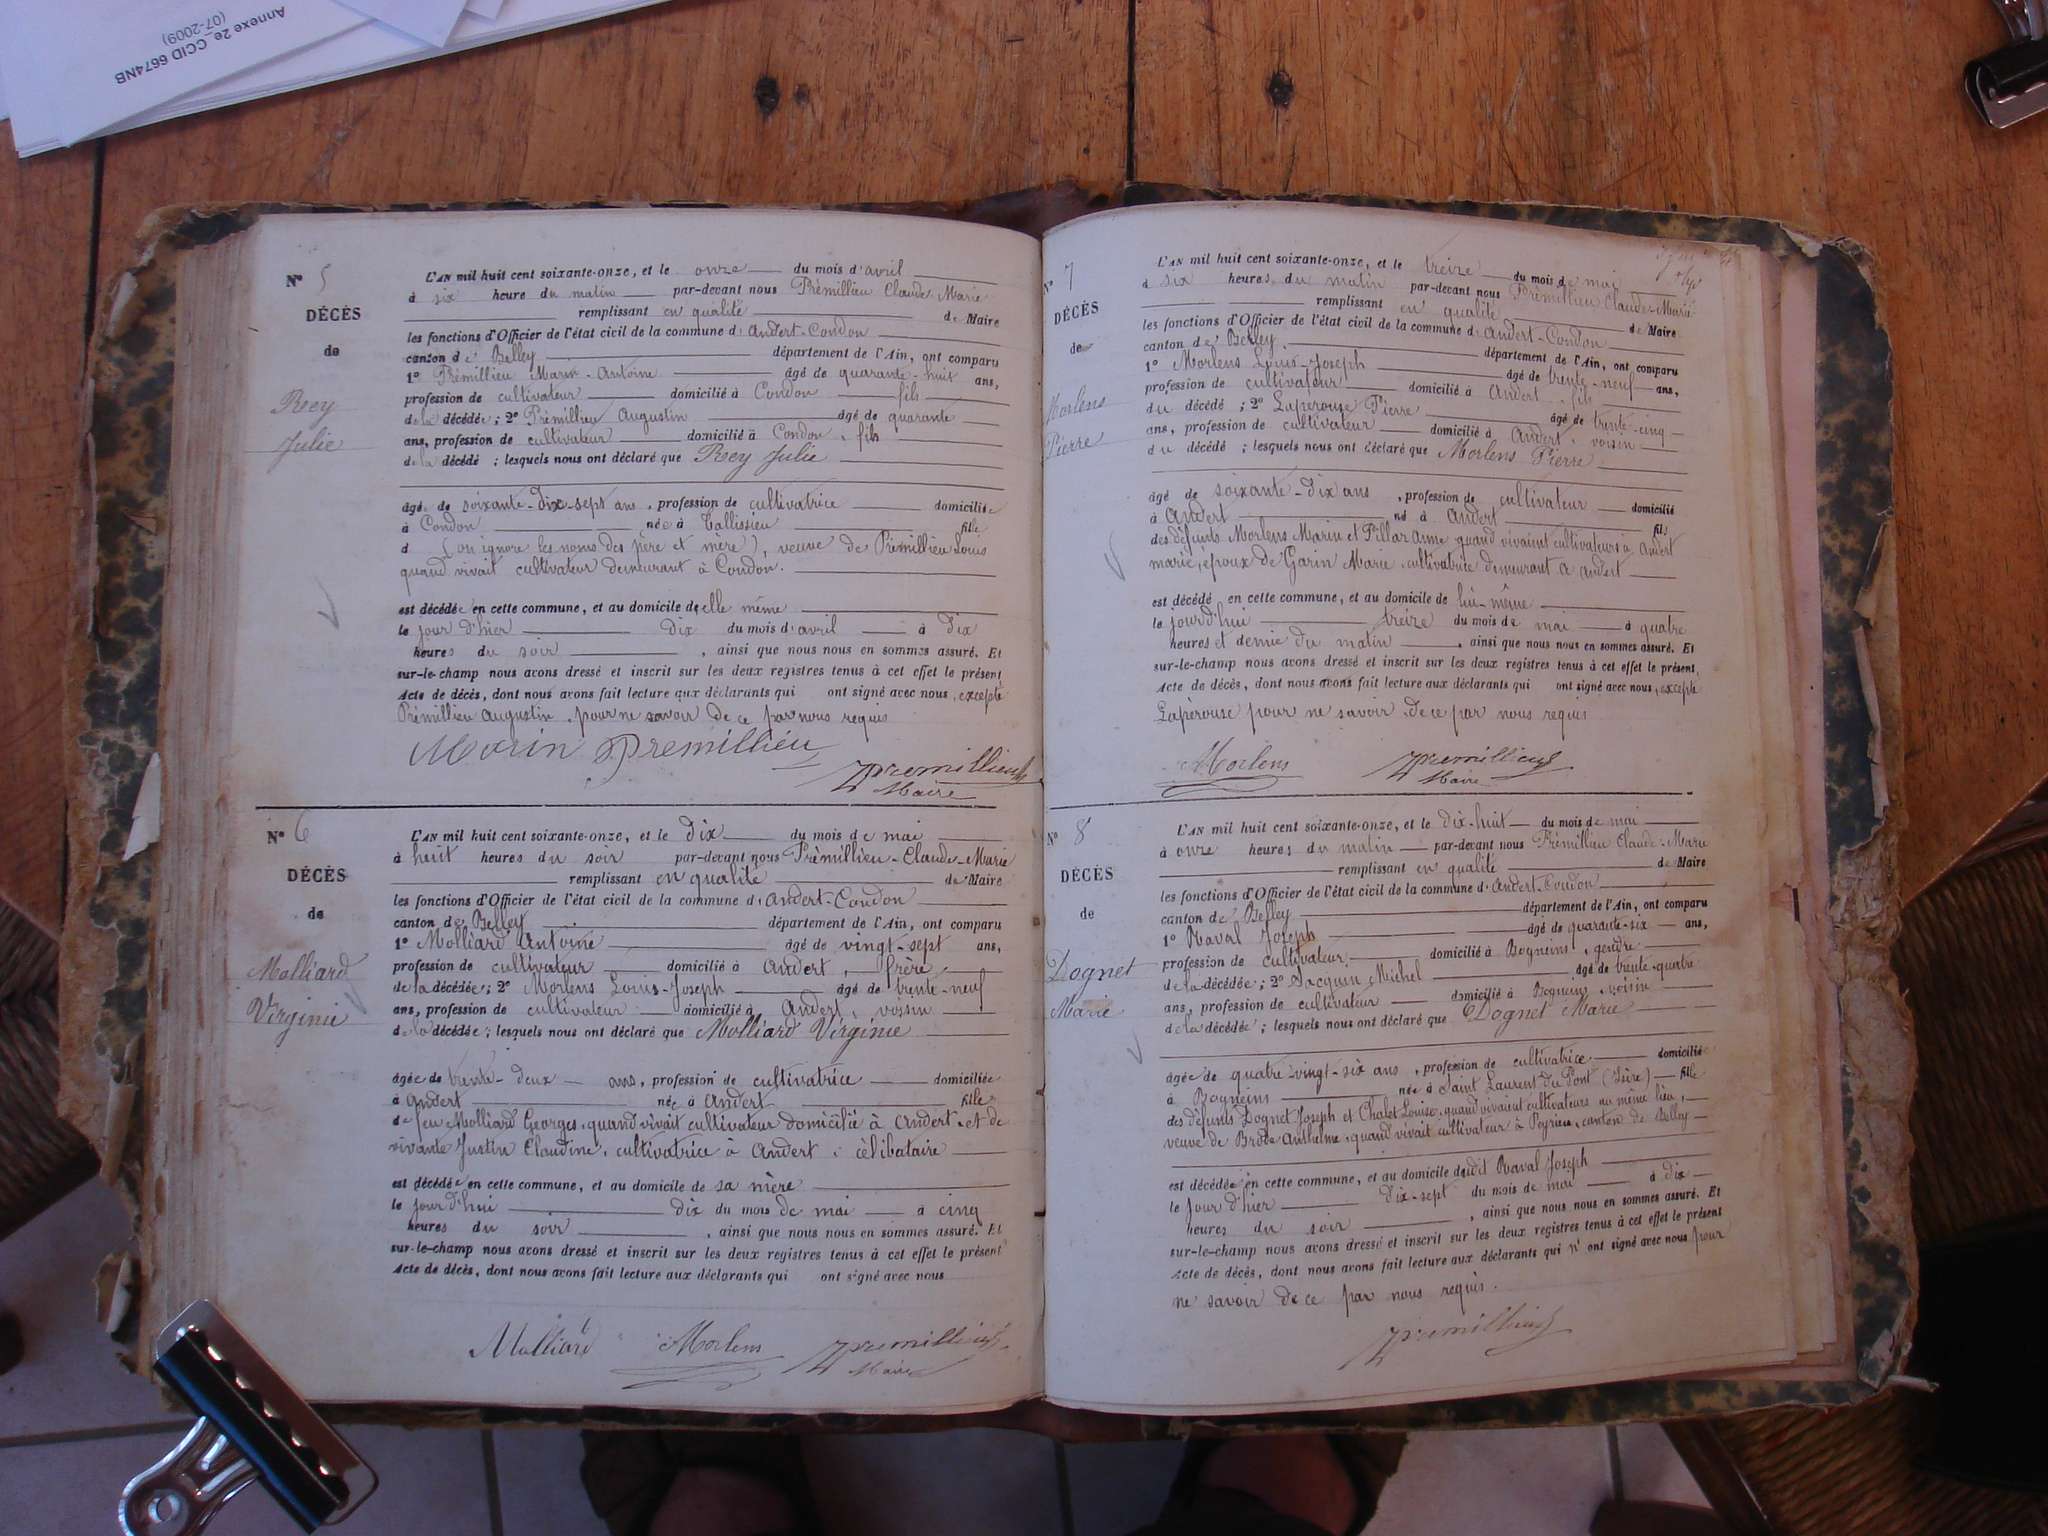 Annexe 2e_CCID 6674NB
(07-2009)
N° 5
DÉCÈS
de
Rey
Julie
L'AN mil huit cent soixante-onze, et le onze du mois d'avril
à six heure du matin par-devant nous Prémillieu Claude-Marie
remplissant en qualité de Maire
les fonctions d'Officier de l'état civil de la commune d'Andert-Condon
canton de Belley département de l'Ain, ont comparu
1° Prémillieu Marin-Antoine âgé de quarante-huit ans,
profession de cultivateur domicilié à Condon fils
de la décédée ; 2° Prémillieu Augustin âgé de quarante
ans, profession de cultivateur domicilié à Condon, fils
de la décédé ; lesquels nous ont déclaré que Rey Julie
âgée de soixante-dix-sept ans, profession de cultivatrice domiciliée
à Condon née à Tallissieu fille
d (on ignore les noms des père et mère), veuve de Prémillieu Louis
quand vivait cultivateur demeurant à Condon.
est décédée en cette commune, et au domicile d'elle même
le jour d'hier dix du mois d'avril à dix
heures du soir, ainsi que nous nous en sommes assuré. Et
sur-le-champ nous avons dressé et inscrit sur les deux registres tenus à cet effet le présent
Acte de décès, dont nous avons fait lecture aux déclarants qui ont signé avec nous, excepté
Prémillieu Augustin, pour ne savoir de ce par nous requis
Marin Premillieu
Premillieu
Maire
N° 6
DÉCÈS
de
Molliard
Virginie
L'AN mil huit cent soixante-onze, et le dix du mois de mai
à huit heures du soir par-devant nous Prémillieu-Claude-Marie
remplissant en qualité de Maire
les fonctions d'Officier de l'état civil de la commune d'Andert-Condon
canton de Belley département de l'Ain, ont comparu
1° Molliard Antoine âgé de vingt-sept ans,
profession de cultivateur domicilié à Andert, frère
de la décédée ; 2° Morlens Louis-Joseph âgé de trente-neuf
ans, profession de cultivateur domicilié à Andert, voisin
de la décédée ; lesquels nous ont déclaré que Molliard Virginie
âgée de trente-deux ans, profession de cultivatrice domiciliée
à Andert née à Andert fille
de feu Molliard Georges, quand vivait cultivateur domicilié à Andert, et de
vivante Justin Claudine, cultivatrice à Andert, célibataire
est décédée en cette commune, et au domicile de sa mère
le jour d'hui dix du mois de mai à cinq
heures du soir, ainsi que nous nous en sommes assuré. Et
sur-le-champ nous avons dressé et inscrit sur les deux registres tenus à cet effet le présent
Acte de décès, dont nous avons fait lecture aux déclarants qui ont signé avec nous
Molliard Morlens Premillieu
Maire
N° 7
DÉCÈS
de
Morlens
Pierre
L'AN mil huit cent soixante-onze, et le treize du mois de mai
à six heures du matin par-devant nous Prémillieu Claude-Marie
remplissant en qualité de Maire
les fonctions d'Officier de l'état civil de la commune d'Andert-Condon
canton de Belley département de l'Ain, ont comparu
1° Morlens Louis-Joseph âgé de trente-neuf ans,
profession de cultivateur domicilié à Andert, fils
du décédé ; 2° Lapérouse Pierre âgé de trente-cinq
ans, profession de cultivateur domicilié à Andert, voisin
du décédé ; lesquels nous ont déclaré que Morlens Pierre
âgé de soixante-dix ans, profession de cultivateur domicilié
à Andert né à Andert fils
des défunts Morlens Marin et Pillar Anne quand vivaient cultivateurs à Andert
marié, époux de Garin Marie, cultivatrice demeurant à Andert
est décédé en cette commune, et au domicile de lui-même
le jourd'hui treize du mois de mai à quatre
heures et demie du matin, ainsi que nous nous en sommes assuré. Et
sur-le-champ nous avons dressé et inscrit sur les deux registres tenus à cet effet le présent
Acte de décès, dont nous avons fait lecture aux déclarants qui ont signé avec nous, excepté
Lapérouse pour ne savoir de ce par nous requis
Morlens Premillieu
Maire
N° 8
DÉCÈS
de
Dognet
Marie
L'AN mil huit cent soixante-onze, et le dix-huit du mois de mai
à onze heures du matin par-devant nous Prémillieu Claude-Marie
remplissant en qualité de Maire
les fonctions d'Officier de l'état civil de la commune d'Andert-Condon
canton de Belley département de l'Ain, ont comparu
1° Raval Joseph âgé de quarante-six ans,
profession de cultivateur domicilié à Bogneins, gendre
de la décédée ; 2° Jacquin Michel âgé de trente-quatre
ans, profession de cultivateur domicilié à Bogneins voisin
de la décédée ; lesquels nous ont déclaré que Dognet Marie
âgée de quatre-vingt-six ans, profession de cultivatrice domiciliée
à Bogneins née à Saint Laurent du Pont (Isère) fille
des défunts Dognet Joseph et Chalet Louise, quand vivaient cultivateurs au même lieu,
veuve de Brode Anthelme, quand vivait cultivateur à Peyrieu, canton de Belley
est décédée en cette commune, et au domicile dudit Raval Joseph
le jour d'hier dix-sept du mois de mai à dix
heures du soir, ainsi que nous nous en sommes assuré. Et
sur-le-champ nous avons dressé et inscrit sur les deux registres tenus à cet effet le présent
Acte de décès, dont nous avons fait lecture aux déclarants qui n'ont signé avec nous pour
ne savoir de ce par nous requis.
Premillieu